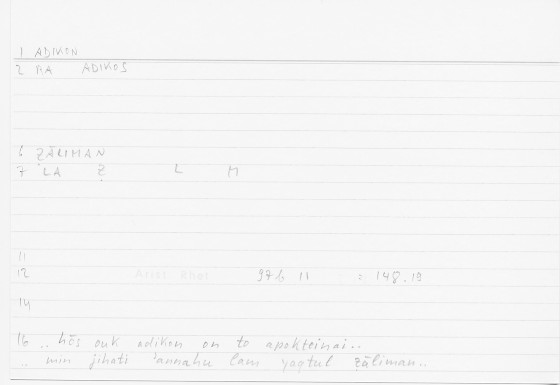 1 ADIKON
2 MA ADIKOS
6 ẒĀLIMAN
7 LA Ẓ L M
11
12 Arist Rhet 97b 11 = 148.19
14
16 .. hōs ouk adikon on to apokteinai..
.. min jihati 'annahu lam yaqtul ẓāliman..